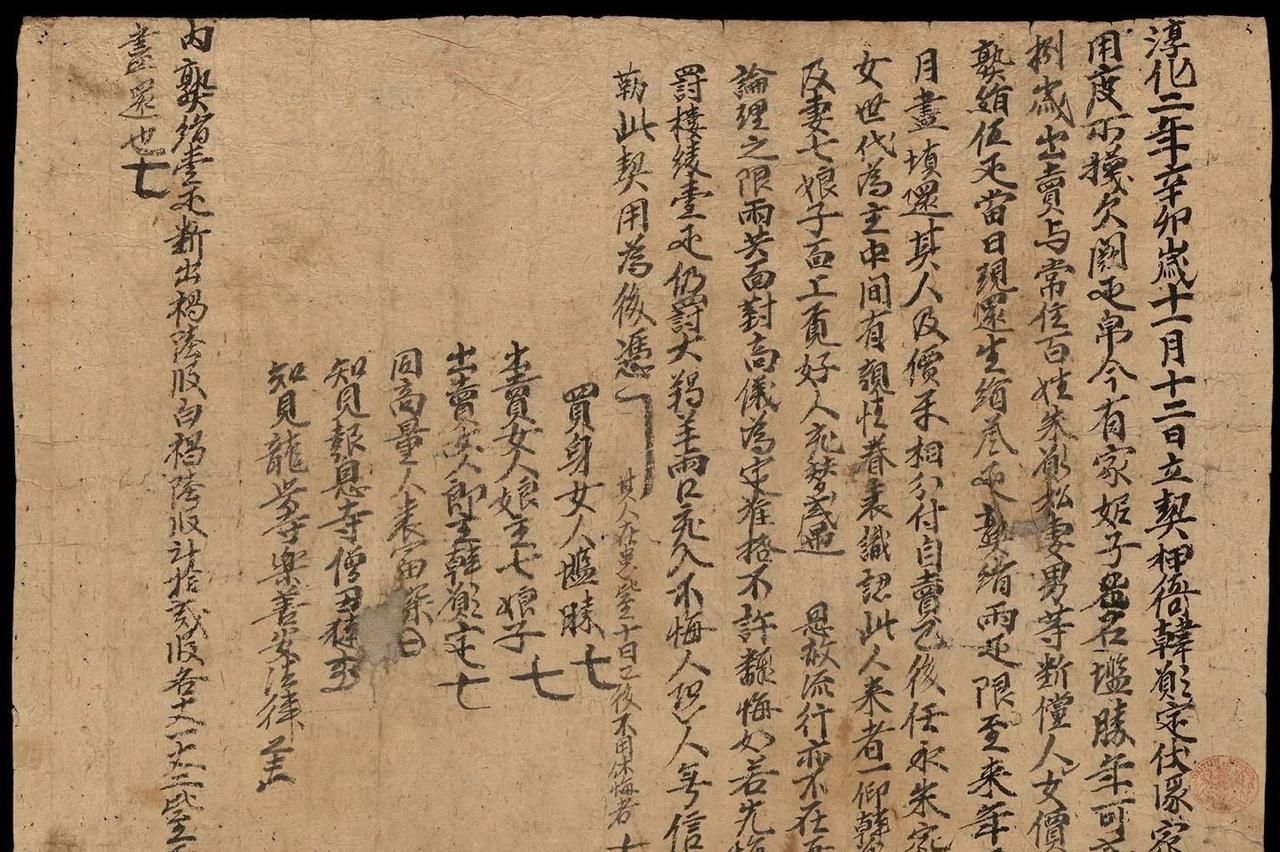 淳化二年辛卯歲十一月十二日立契押衙韓願定伏緣家
用度不攩欠闕疋帛今有家妮子名㽉勝年可
捌歲出賣与常住百姓朱願松妻男等断儻人女價
熟絹伍疋當日現還生絹叁疋熟絹兩疋限至來年
月盡填還其人及價互相分付自賣已後任永朱家
女世代為主中間有親情眷表識認此人來者一仰韓
及妻七娘子面上覓好人充替或遇 恩赦流行亦不在
論理之限兩共面對商儀為定准格不許翻悔如若先悔
罰樓綾壹疋仍罰大羯羊兩口充入不悔人恐人無信
勒此契用為後憑 其人在患比至十日已後不用休悔者
買身女人㽉勝
出賣女人娘主七娘子 七
出賣女人郎主韓願定 七
同商量人袁富深
知見報恩寺僧丑撻
知見龍興寺樂善安法律
內熟絹壹疋断出褐陸段白褐陸段計拾貳段各丈一丈二比至
盡還也 七